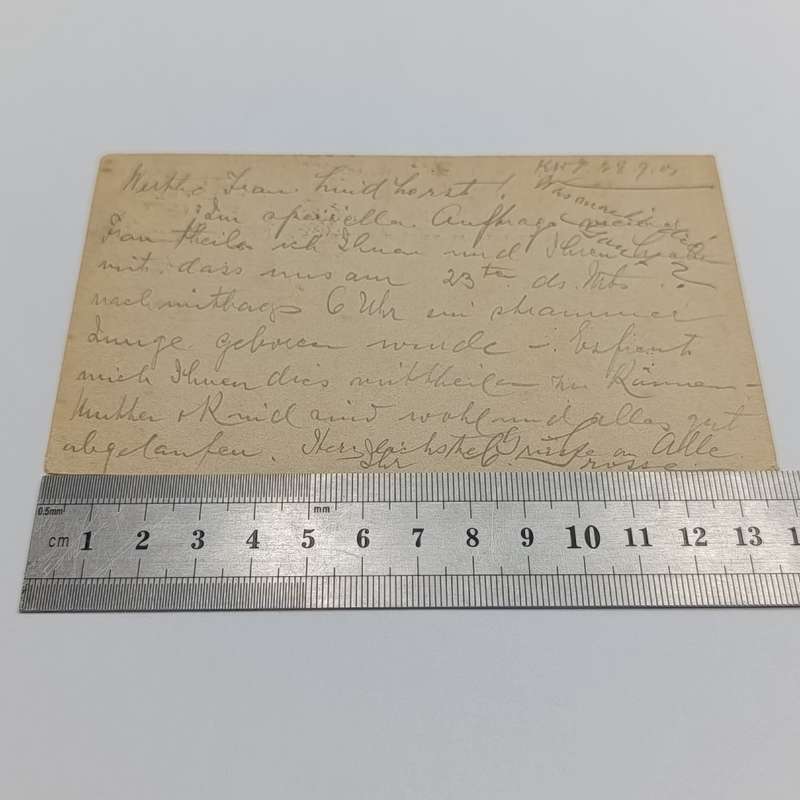 28.9.01
Werthe Frau Lindhorst!
Im speciellen Auftrage meiner
Frau theile ich Ihnen und Ihrem
mit, dass uns am 23ten ds. Mts.
nachmittags 6 Uhr ein strammer
Junge geboren wurde –. Es freut
mich Ihnen dies mittheilen zu können –
Mutter & Kind sind wohl und alles gut
abgelaufen. Herzlichste Grüsse an Alle
Ihr Grosse
0.5mm mm
cm 1 2 3 4 5 6 7 8 9 10 11 12 13 1